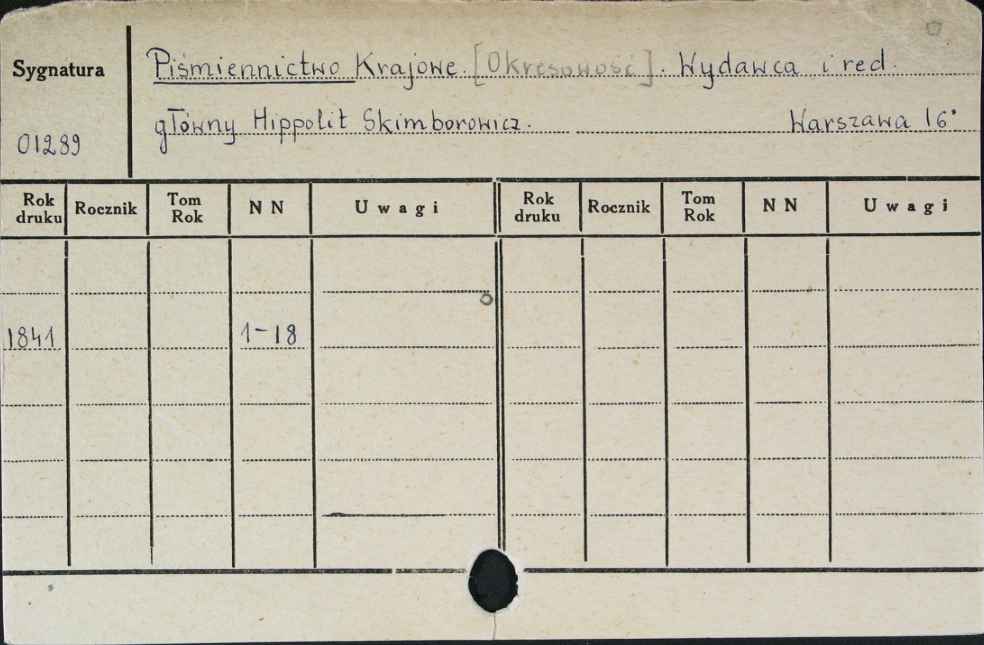 Sygnatura
Piśmiennictwo Krajowe. [Okresowość]. Wydawca i red.
główny Hippolit Skimborowicz. Warszawa 16°
01289
Rok druku Rocznik Tom Rok N N Uwagi Rok druku Rocznik Tom Rok N N Uwagi
1841 1-18